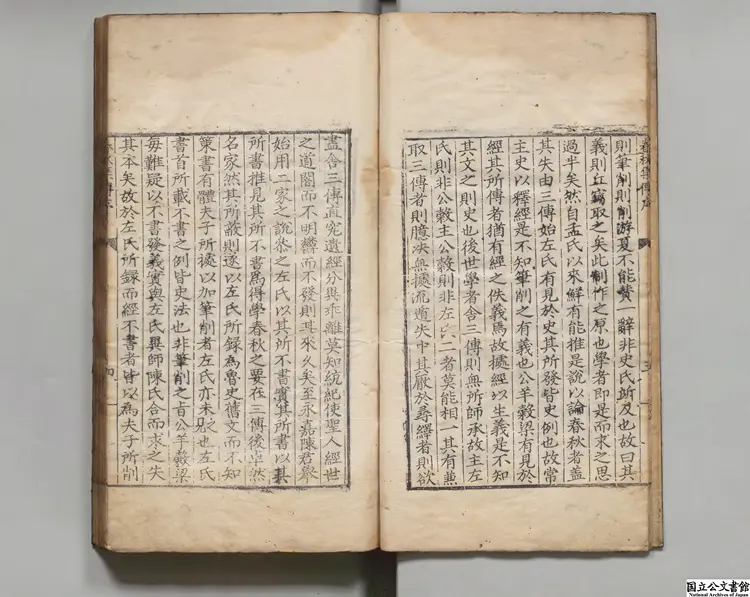 則筆削則削游夏不能賛一辭非史氏所及也故曰其
義則丘竊取之矣此制作之原也學者即是而求之思
過半矣然自孟氏以來鮮有能推是說以論春秋者蓋
其失由三傳始左氏有見於史其所發皆史例也故常
主史以釋經是不知筆削之有義也公羊糓梁有見於
經其所傳者猶有經之佚義焉故據經以生義是不知
其文之則史也後世學者舍三傳則無所師承故主左
氏則非公糓主公糓則非左氏二者莫能相一其有兼
取三傳者則臆决無據流遁失中其厭於尋繹者則欲
春秋集傳序
三
盡舍三傳直究遺經分異乖離莫知統紀使聖人經世
之道闇而不明欝而不發則其來久矣至永嘉陳君舉
始用二家之說叅之左氏以其所不書實其所書以其
所書推見其所不書爲得學春秋之要在三傳後卓然
名家然其所蔽則遂以左氏所録為魯史舊文而不知
策書有體夫子所據以加筆削者左氏亦未之見也左氏
書首所載不書之例皆史法也非筆削之旨公羊糓梁
毎難疑以不書發義實與左氏異師陳氏合而求之失
其本矣故於左氏所録而經不書者皆以為夫子所削
春秋集傳序
四
国立公文書館
National Archives of Japan